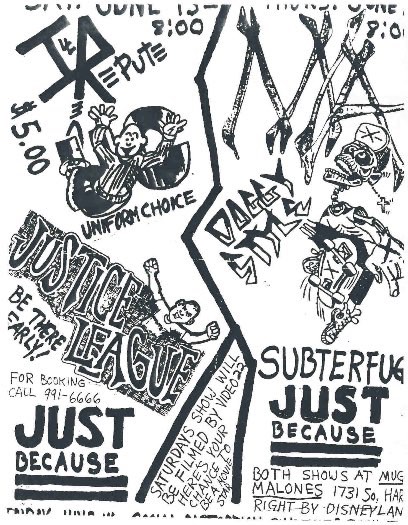 SAT. JUNE 13
8:00
ILL REPUTE
$5.00
UNIFORM CHOICE
JUSTICE
LEAGUE
BE THERE
EARLY!
FOR BOOKING
CALL 991-6666
JUST
BECAUSE
THURS. JUNE
8:0
DOGGY
STYLE
SUBTERFUG
JUST
BECAUSE
SATURDAYS SHOW WILL
BE FILMED BY VIDEO22
HERE'S YOUR
CHANCE TO
BE A
BOTH SHOWS AT MUG
MALONES 1731 So. HAR
RIGHT BY DISNEYLAN
FRIDAY JUNE